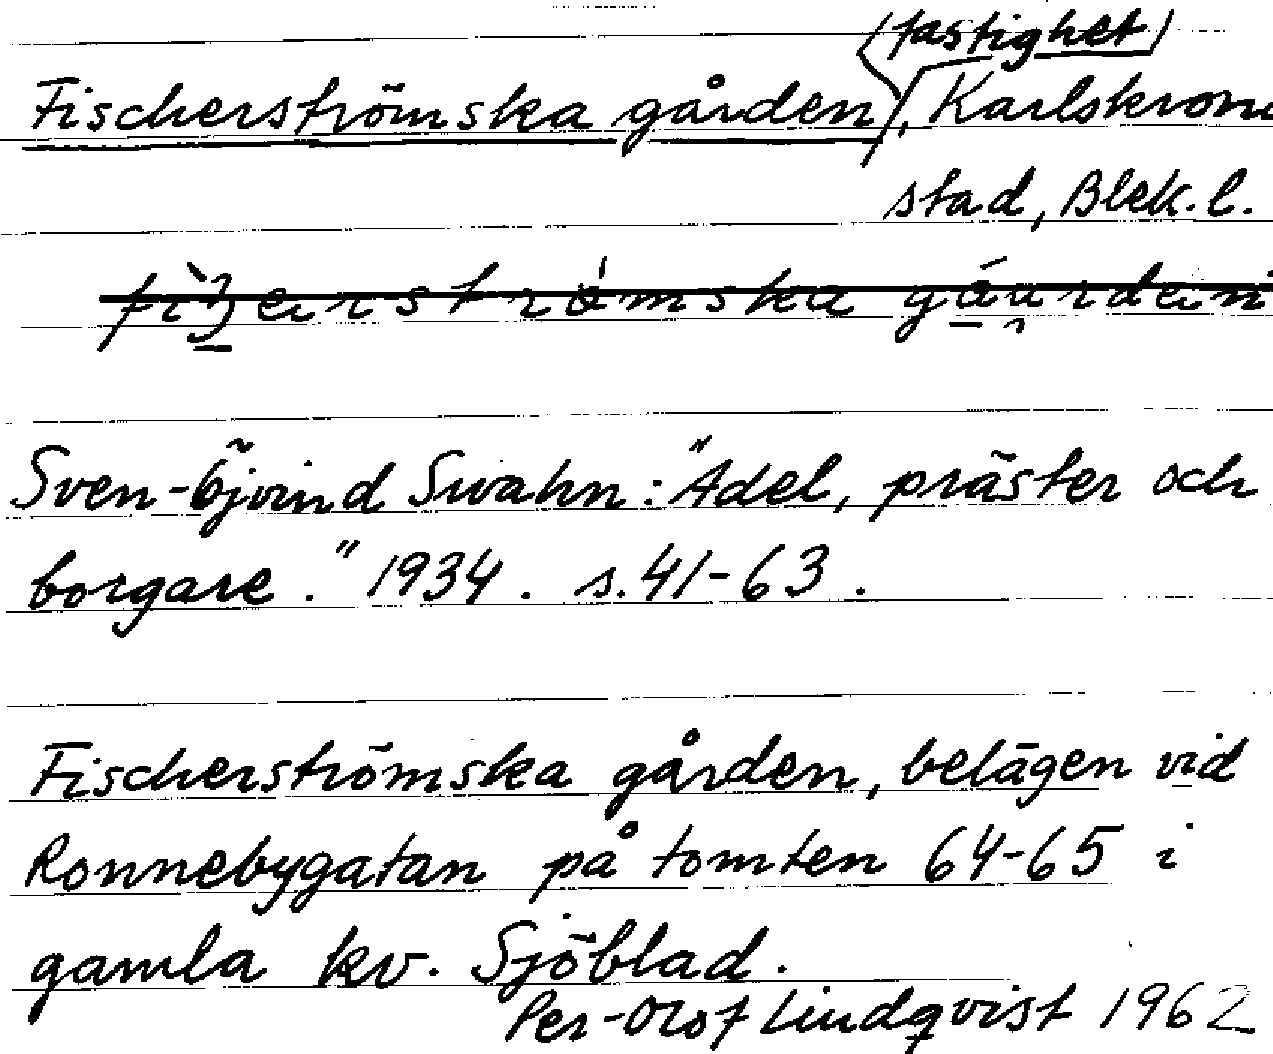 (fastighet)
Fischerströmska gården, Karlskrona
stad, Blek. l.
Sven-Öjvind Swahn: "Adel, präster och
borgare." 1934. s. 41-63.
Fischerströmska gården, belägen vid
Ronnebygatan på tomten 64-65 i
gamla kv. Sjöblad.
Per-Olof Lindqvist 1962